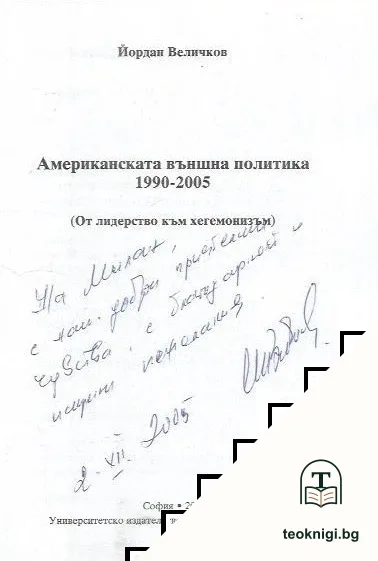 Йордан Величков
Американската външна политика
1990-2005
(От лидерство към хегемонизъм)
На Милан,
с най-добри приятелски
чувства, с благодарност и
искрени пожелания
2. XII. 2005
София • 20
Университетско издател
T
teoknigi.bg